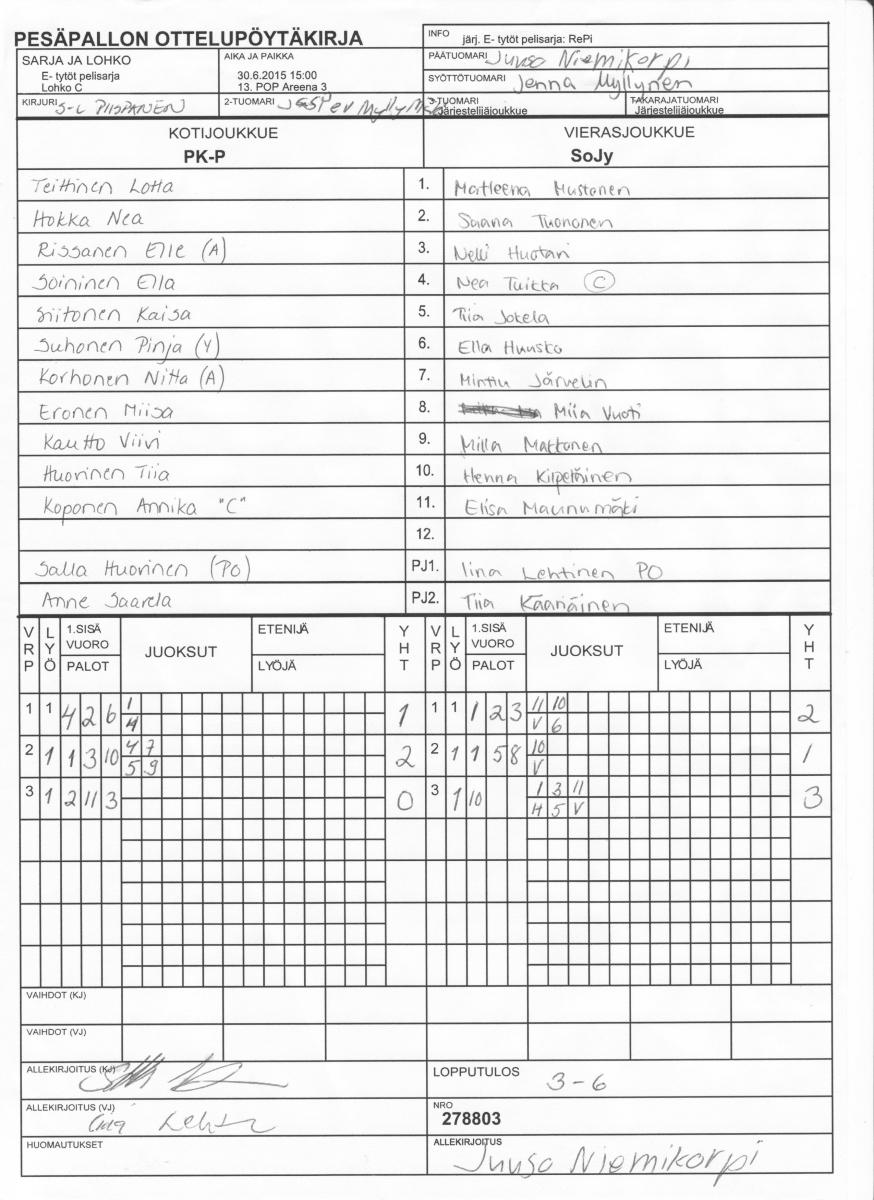 PESÄPALLON OTTELUPÖYTÄKIRJA
INFO järj. E- tytöt pelisarja: RePi
SARJA JA LOHKO
E- tytöt pelisarja
Lohko C
AIKA JA PAIKKA
30.6.2015 15:00
13. POP Areena 3
PÄÄTUOMARI Juuso Niemikorpi
SYÖTTÖTUOMARI Jenna Myllynen
KIRJURI S-L PIISPANEN
2-TUOMARI Jesper
3-TUOMARI
Järjestelijäjoukkue
TAKARAJATUOMARI
Järjestelijäjoukkue
KOTIJOUKKUE VIERASJOUKKUE
PK-P SoJy
Teittinen Lotta 1. Matleena Mustonen
Hokka Nea 2. Saana Tuononen
Rissanen Elle (A) 3. Nelli Huotari
Soininen Ella 4. Nea Tuikka C
Siitonen Kaisa 5. Tiia Jokela
Suhonen Pinja (Y) 6. Ella Huusko
Korhonen Nitta (A) 7. Minttu Järvelin
Eronen Miisa 8. Miia Vuoti
Kautto Viivi 9. Milla Mattonen
Huorinen Tiia 10. Henna Kilpeläinen
Koponen Annika "C" 11. Elisa Maunumäki
12.
Salla Huorinen (PO) PJ1. Iina Lehtinen PO
Anne Saarela PJ2. Tiia Kääriäinen
VRP LYÖ 1.SISÄ VUORO PALOT JUOKSUT ETENIJÄ LYÖJÄ YHT VRP LYÖ 1.SISÄ VUORO PALOT JUOKSUT ETENIJÄ LYÖJÄ YHT
1 1 4 2 6 1 1 1 1 1 2 3 11 10 2
4 V 6
2 1 1 3 10 4 7 2 2 1 1 5 8 10 1
5 9 V
3 1 2 11 3 0 3 1 10 1 3 11 3
4 5 V
VAIHDOT (KJ)
VAIHDOT (VJ)
ALLEKIRJOITUS (KJ)
LOPPUTULOS 3-6
ALLEKIRJOITUS (VJ)
NRO
278803
HUOMAUTUKSET
ALLEKIRJOITUS
Juuso Niemikorpi